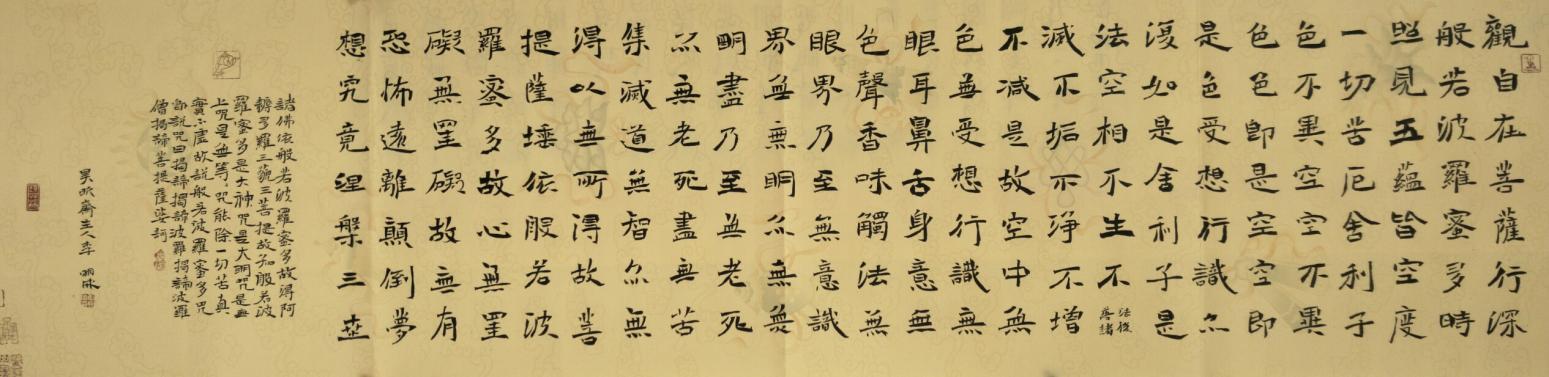 觀自在菩薩行深
般若波羅蜜多時
照見五蘊皆空度
一切苦厄舍利子
色不異空空不異
色色即是空空即
是色受想行識亦
復如是舍利子是
法空相不生不
滅不垢不淨不增
不減是故空中無
色無受想行識無
眼耳鼻舌身意無
色聲香味觸法無
眼界乃至無意識
界無無明亦無無
明盡乃至無老死
亦無老死盡無苦
集滅道無智亦無
得以無所得故菩
提薩埵依般若波
羅蜜多故心無罣
礙無罣礙故無有
恐怖遠離顛倒夢
想究竟涅槃三世
諸佛依般若波羅蜜多故得阿
耨多羅三藐三菩提故知般若波
羅蜜多是大神咒是大明咒是無
上咒是無等々咒能除一切苦真
實不虛故說般若波羅蜜多咒
即說咒曰揭諦揭諦波羅揭諦波羅
僧揭諦菩提薩婆訶
齋主人李明